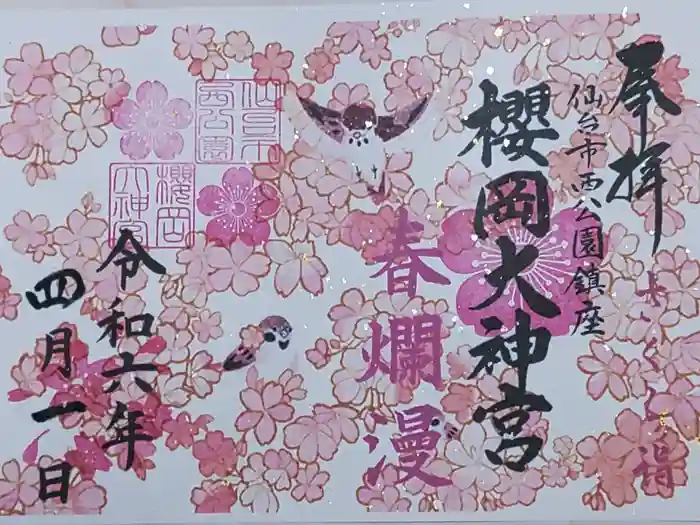 奉拝
仙台市西公園鎮座
櫻岡大神宮
春爛漫
西公園
櫻岡
大神宮
令和六年
四月一日